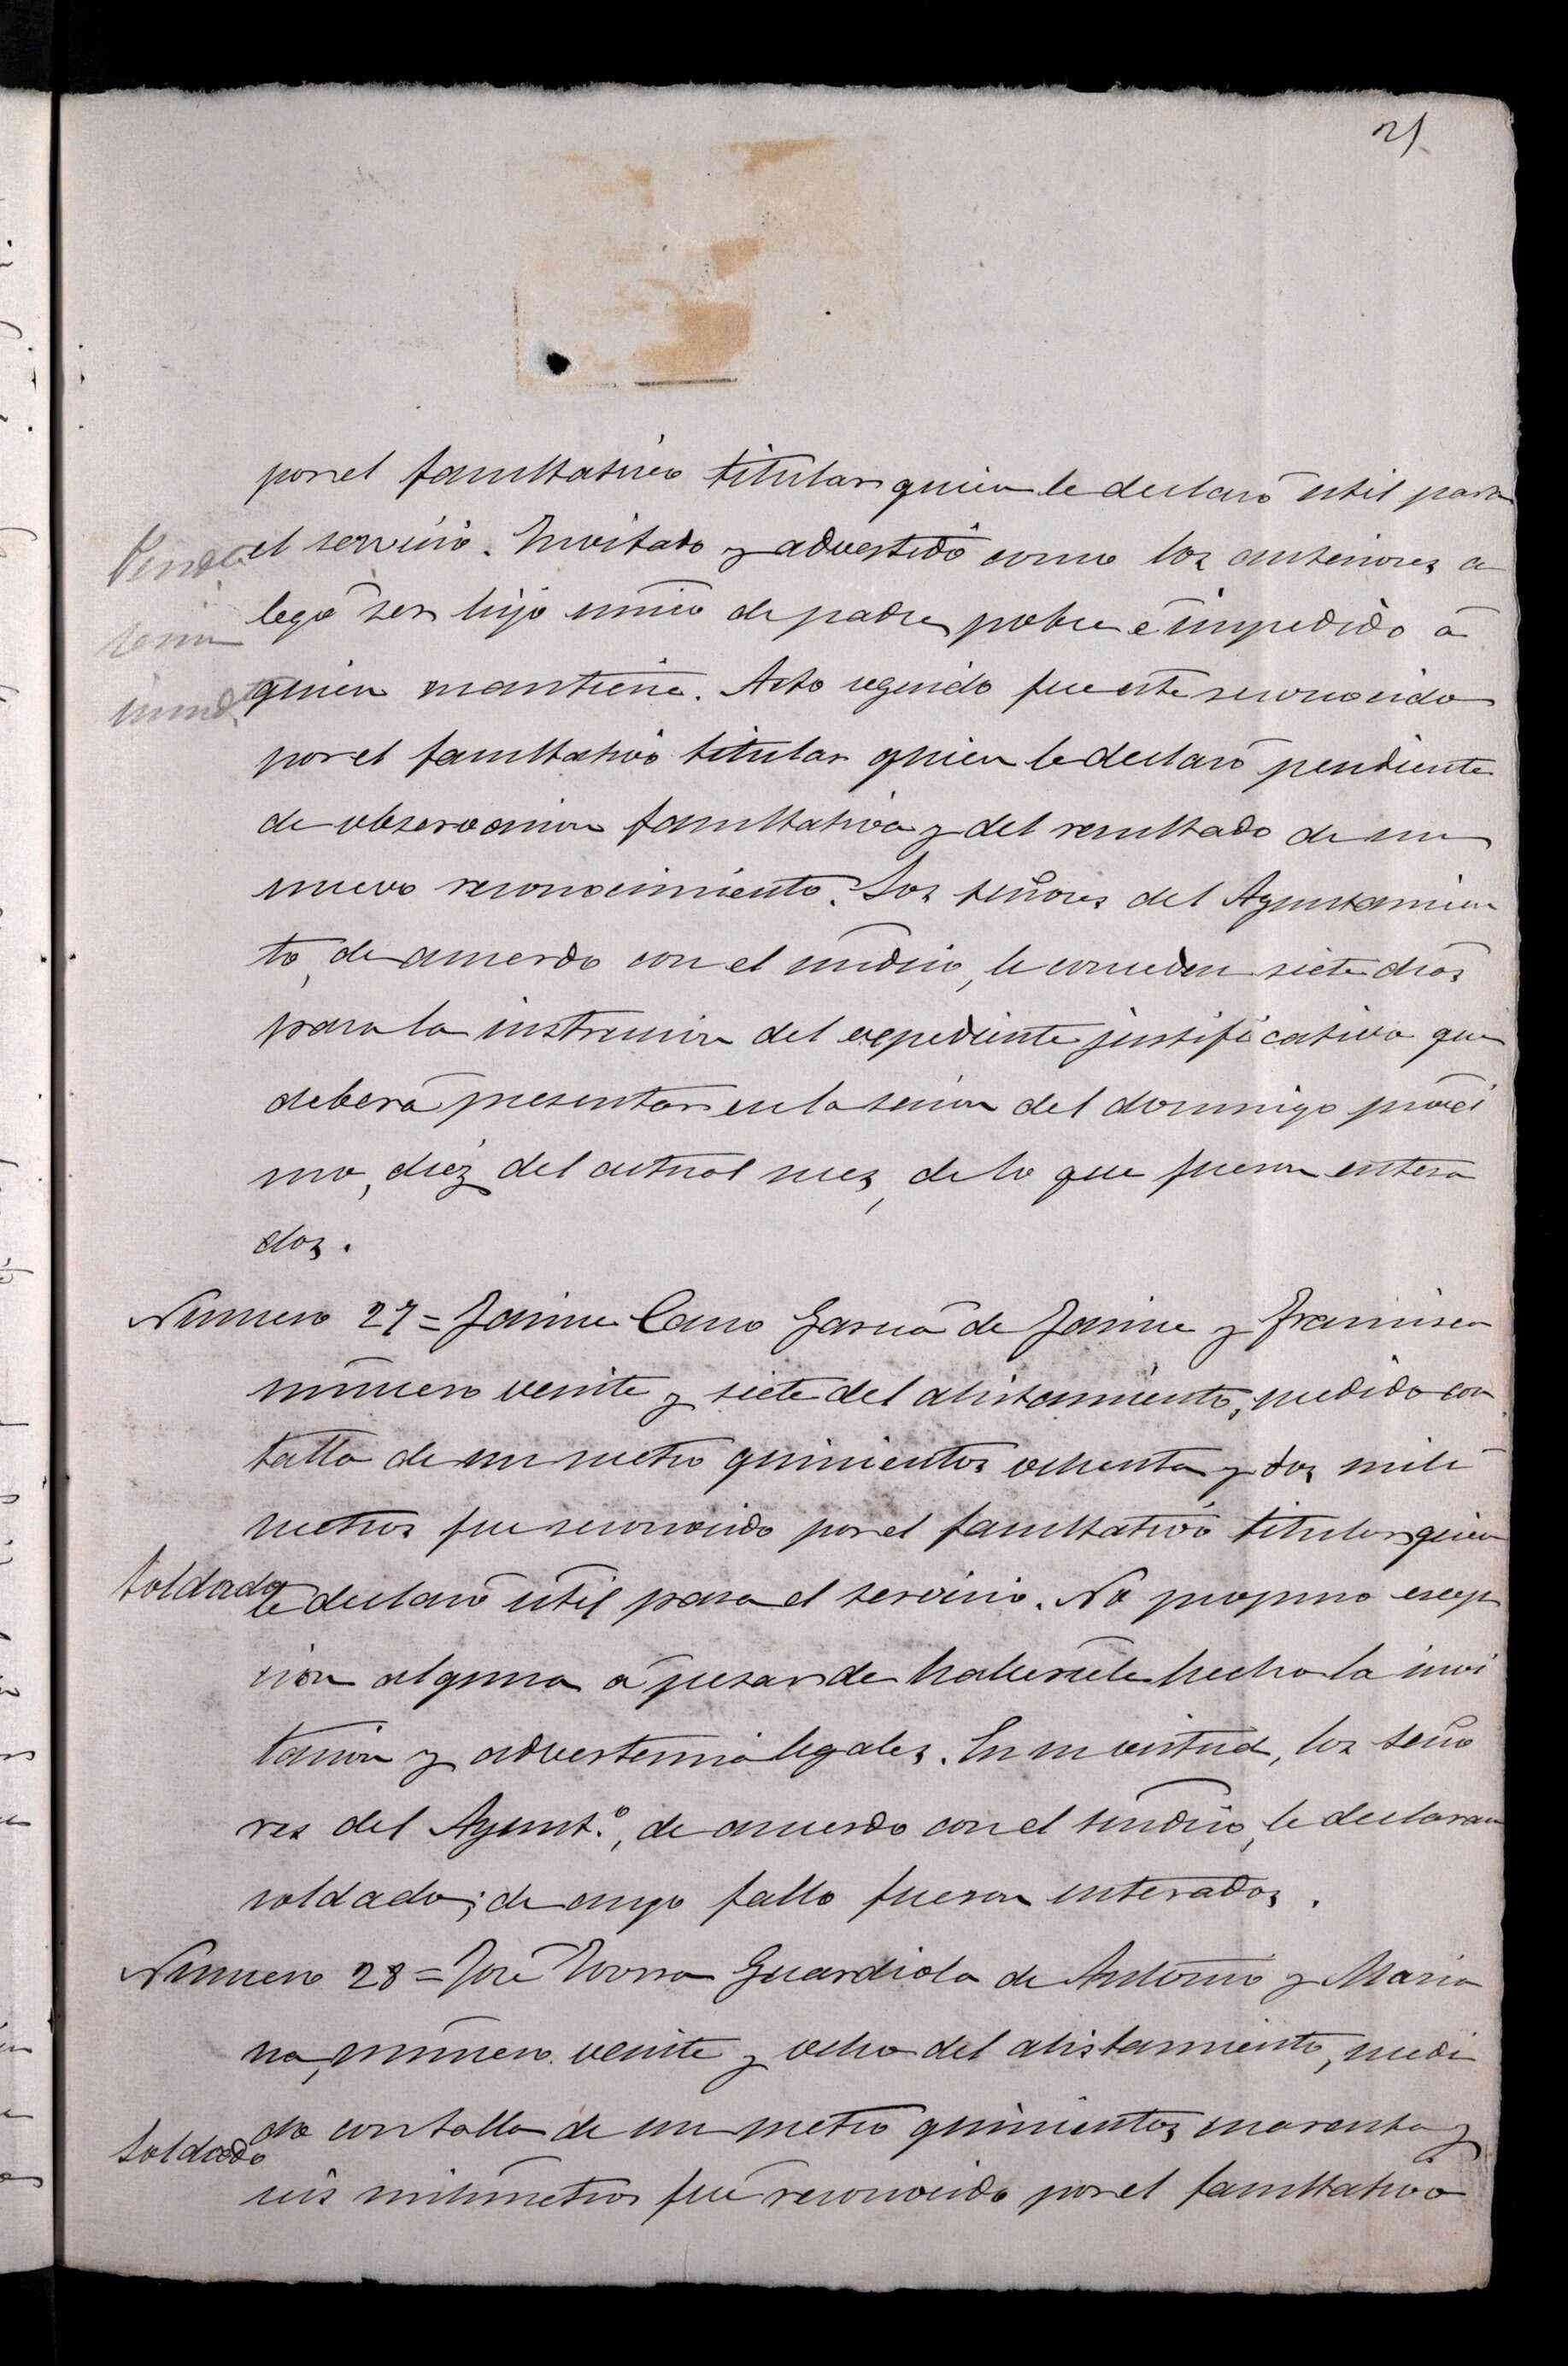 21
por el facultativo titular quien le declaró util para
el servicio. Invitado y advertido como los anteriores a
legó ser hijo único de padre pobre é impedido á
quien mantiene. Acto seguido fue este reconocido
por el facultativo titular quien le declaró pendiente
de observacion facultativa y del resultado de un
nuevo reconocimiento. Los señores del Ayuntamien
to, de acuerdo con el síndico, le conceden siete dias
para la instruccion del expediente justificativo que
deberá presentar en la sesion del domingo próxi
mo, diez del actual mes, de lo que fueron entera
dos.
Número 27 = Jaime Cano García de Jaime y Francisca
número veinte y siete del alistamiento, medido con
talla de un metro quinientos ochenta y dos milí
metros fue reconocido por el facultativo titular quien
Soldado
le declaró útil para el servicio. No propuso escep
cion alguna á pesar de habersele hecho la invi
tacion y advertencia legales. En su virtud, los seño
res del Ayunt.º, de acuerdo con el síndico, le declaran
soldado; de cuyo fallo fueron enterados.
Número 28 = José Guardiola de Antonio y Maria
na, número veinte y ocho del alistamiento, medi
do con talla de un metro quinientos cuarenta y
Soldado
seis milímetros fué reconocido por el facultativo